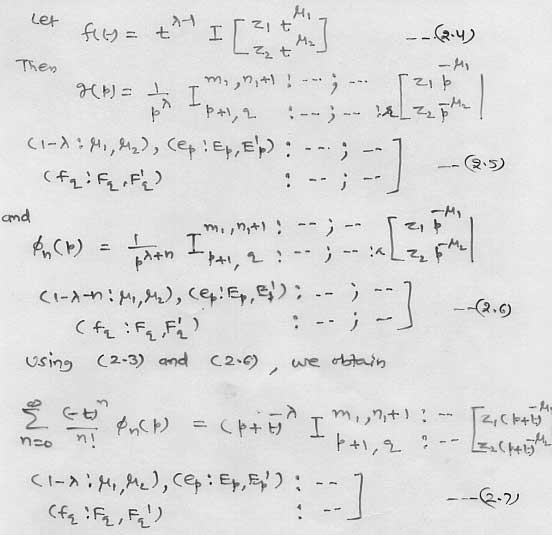 Let f(t) = t^{λ-1} I [ z₁ t^{μ₁} / z₂ t^{μ₂} ] ---(2.4)
Then
g(p) = 1/p^λ I^{m₁, n₁+1 : ---; ---}_{p+1, q : ---; --- :r} [ z₁ p^{-μ₁} / z₂ p^{-μ₂} |
(1-λ : μ₁, μ₂), (e_p : E_p, E'_p) : -- ; --
(f_q : F_q, F'_q) : -- ; -- ] ---(2.5)
and
φ_n(p) = 1/p^{λ+n} I^{m₁, n₁+1 : -- ; --}_{p+1, q : -- ; -- :r} [ z₁ p^{-μ₁} / z₂ p^{-μ₂} |
(1-λ-n : μ₁, μ₂), (e_p : E_p, E'_p) : -- ; --
(f_q : F_q, F'_q) : -- ; -- ] ---(2.6)
Using (2.3) and (2.6), we obtain
∑_{n=0}^{∞} (-t)^n / n! φ_n(p) = (p+t)^{-λ} I^{m₁, n₁+1 : --}_{p+1, q : --} [ z₁(p+t)^{-μ₁} / z₂(p+t)^{-μ₂} |
(1-λ : μ₁, μ₂), (e_p : E_p, E_p') : --
(f_q : F_q, F_q') : -- ] ---(2.7)